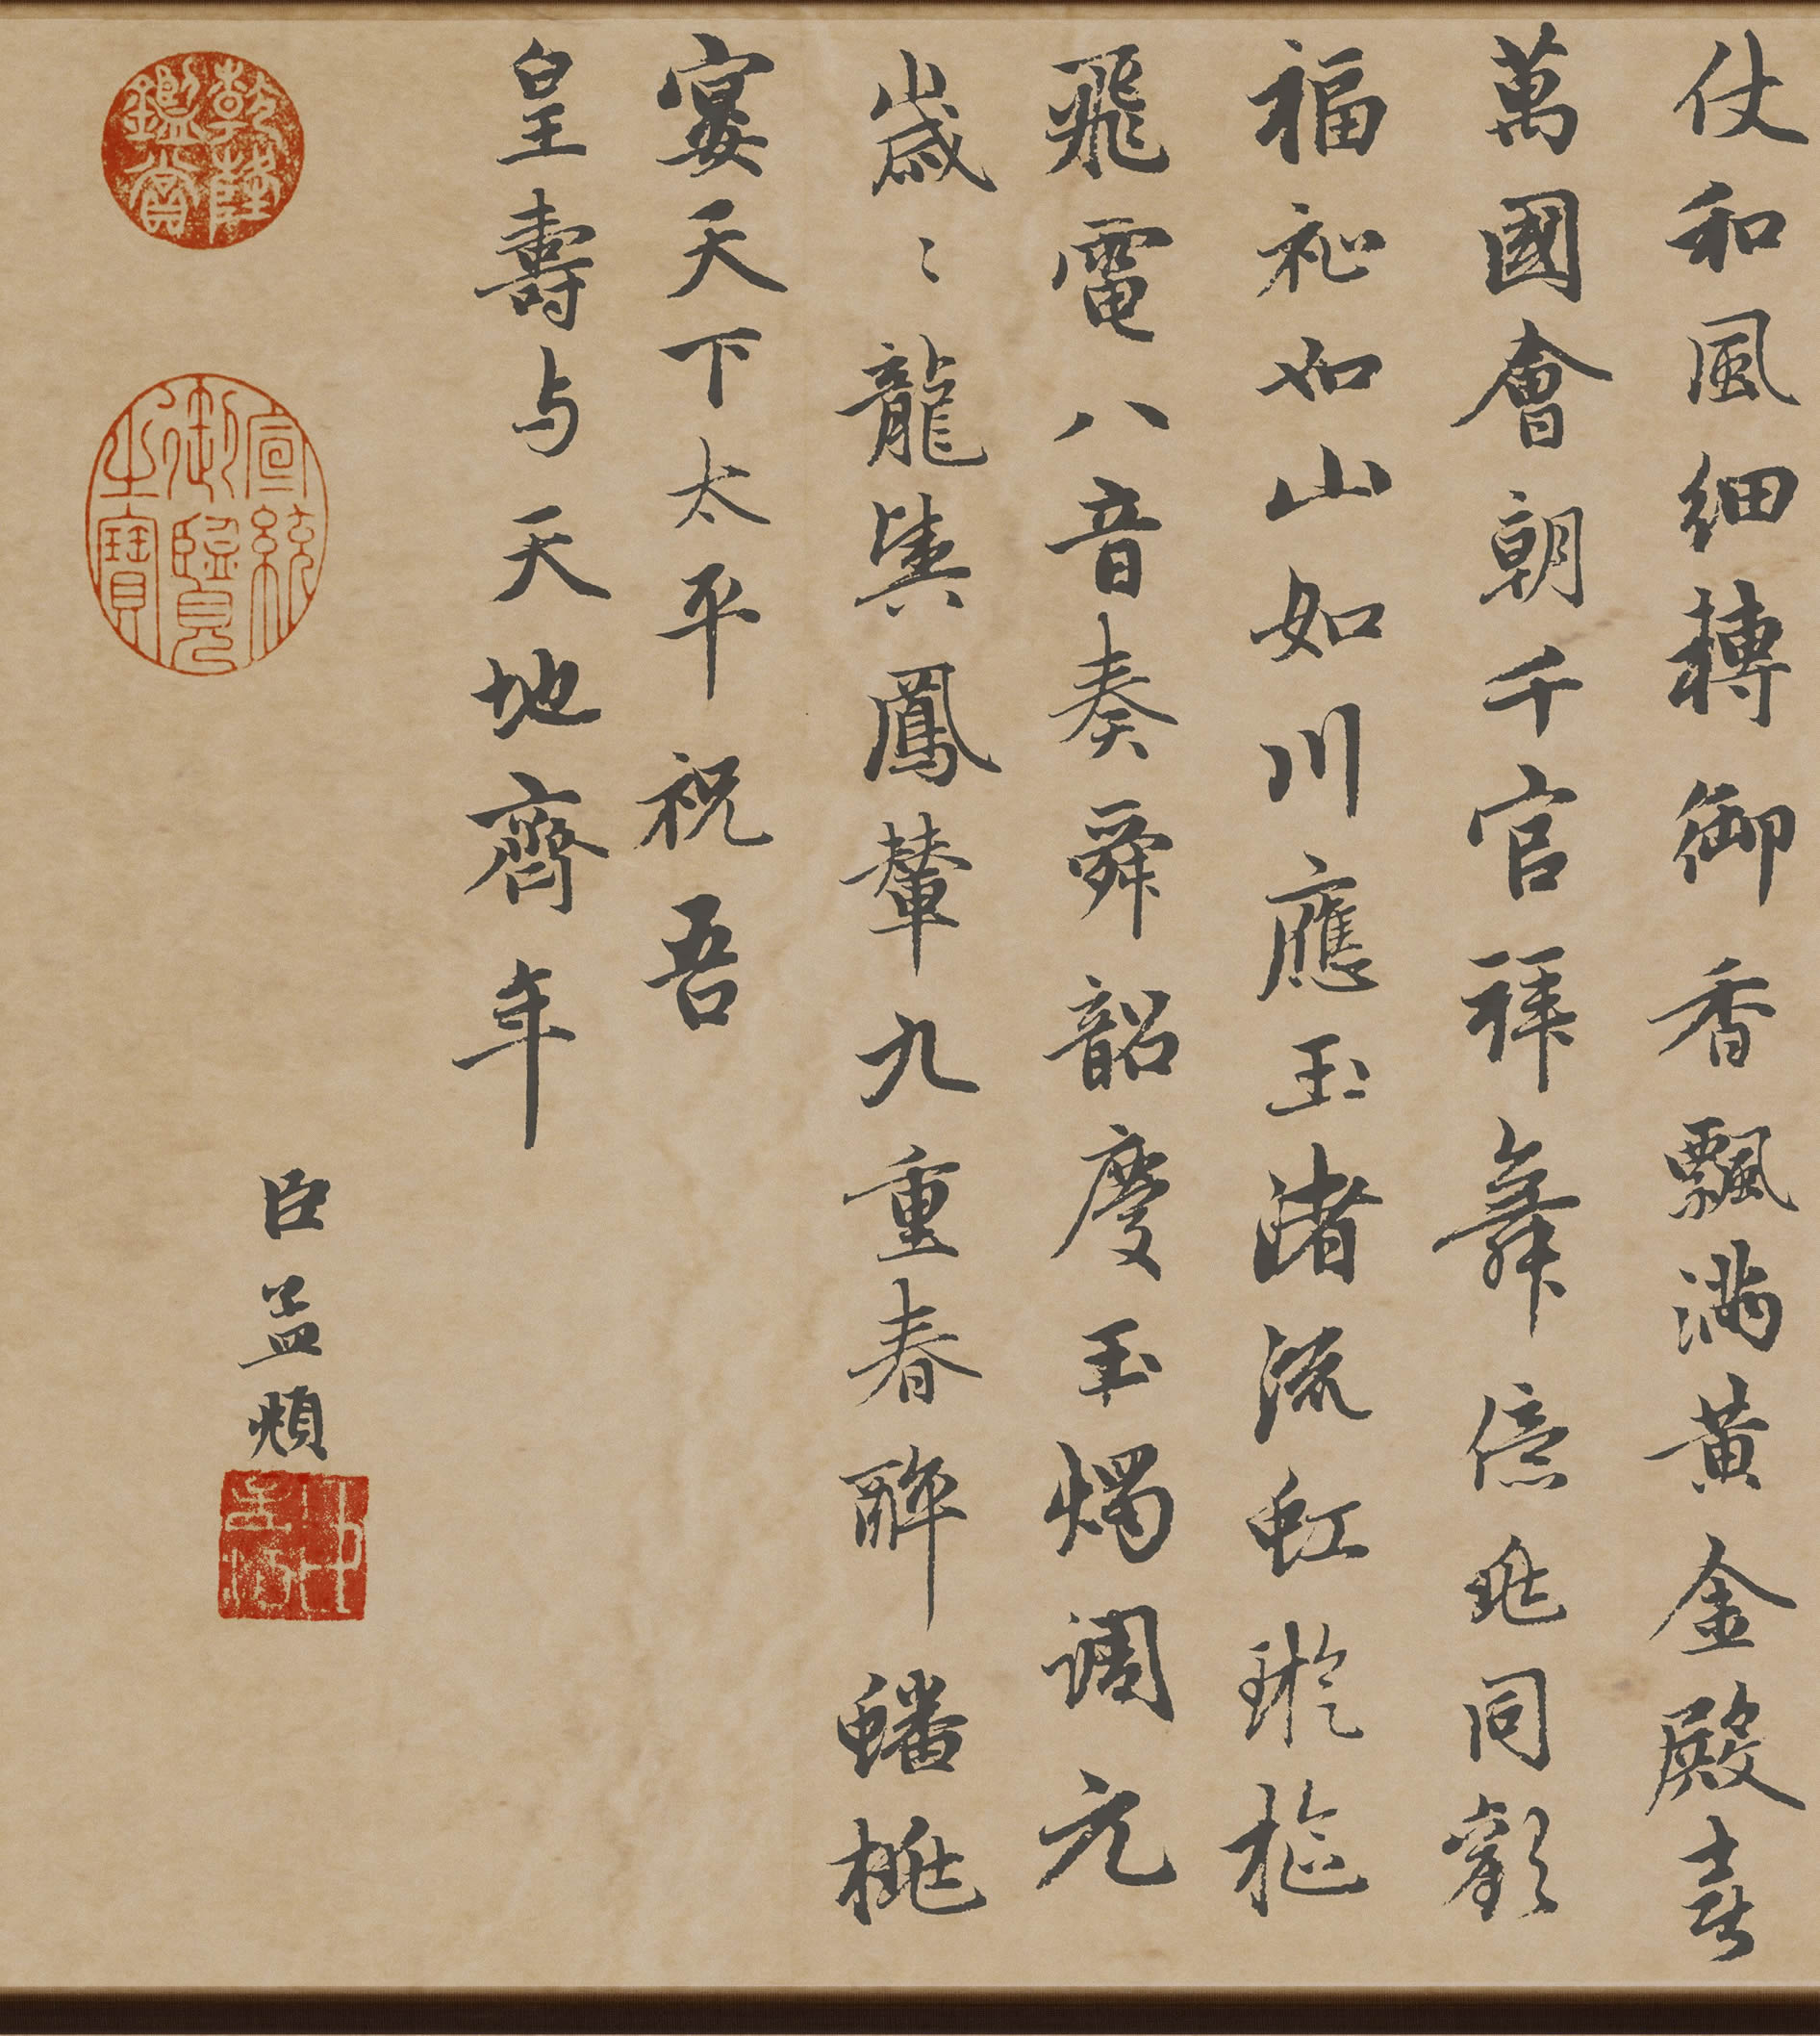 仗和風細轉御香飄滿黃金殿喜
萬國會朝千官拜舞億兆同歡
福祉如山如川應玉渚流虹璇樞
飛電八音奏舜韶慶玉燭調元
歲〻龍輿鳳輦九重春醉蟠桃
宴天下太平祝吾
皇壽与天地齊年
臣孟頫
乾隆鑑賞
宣統御覽之寶